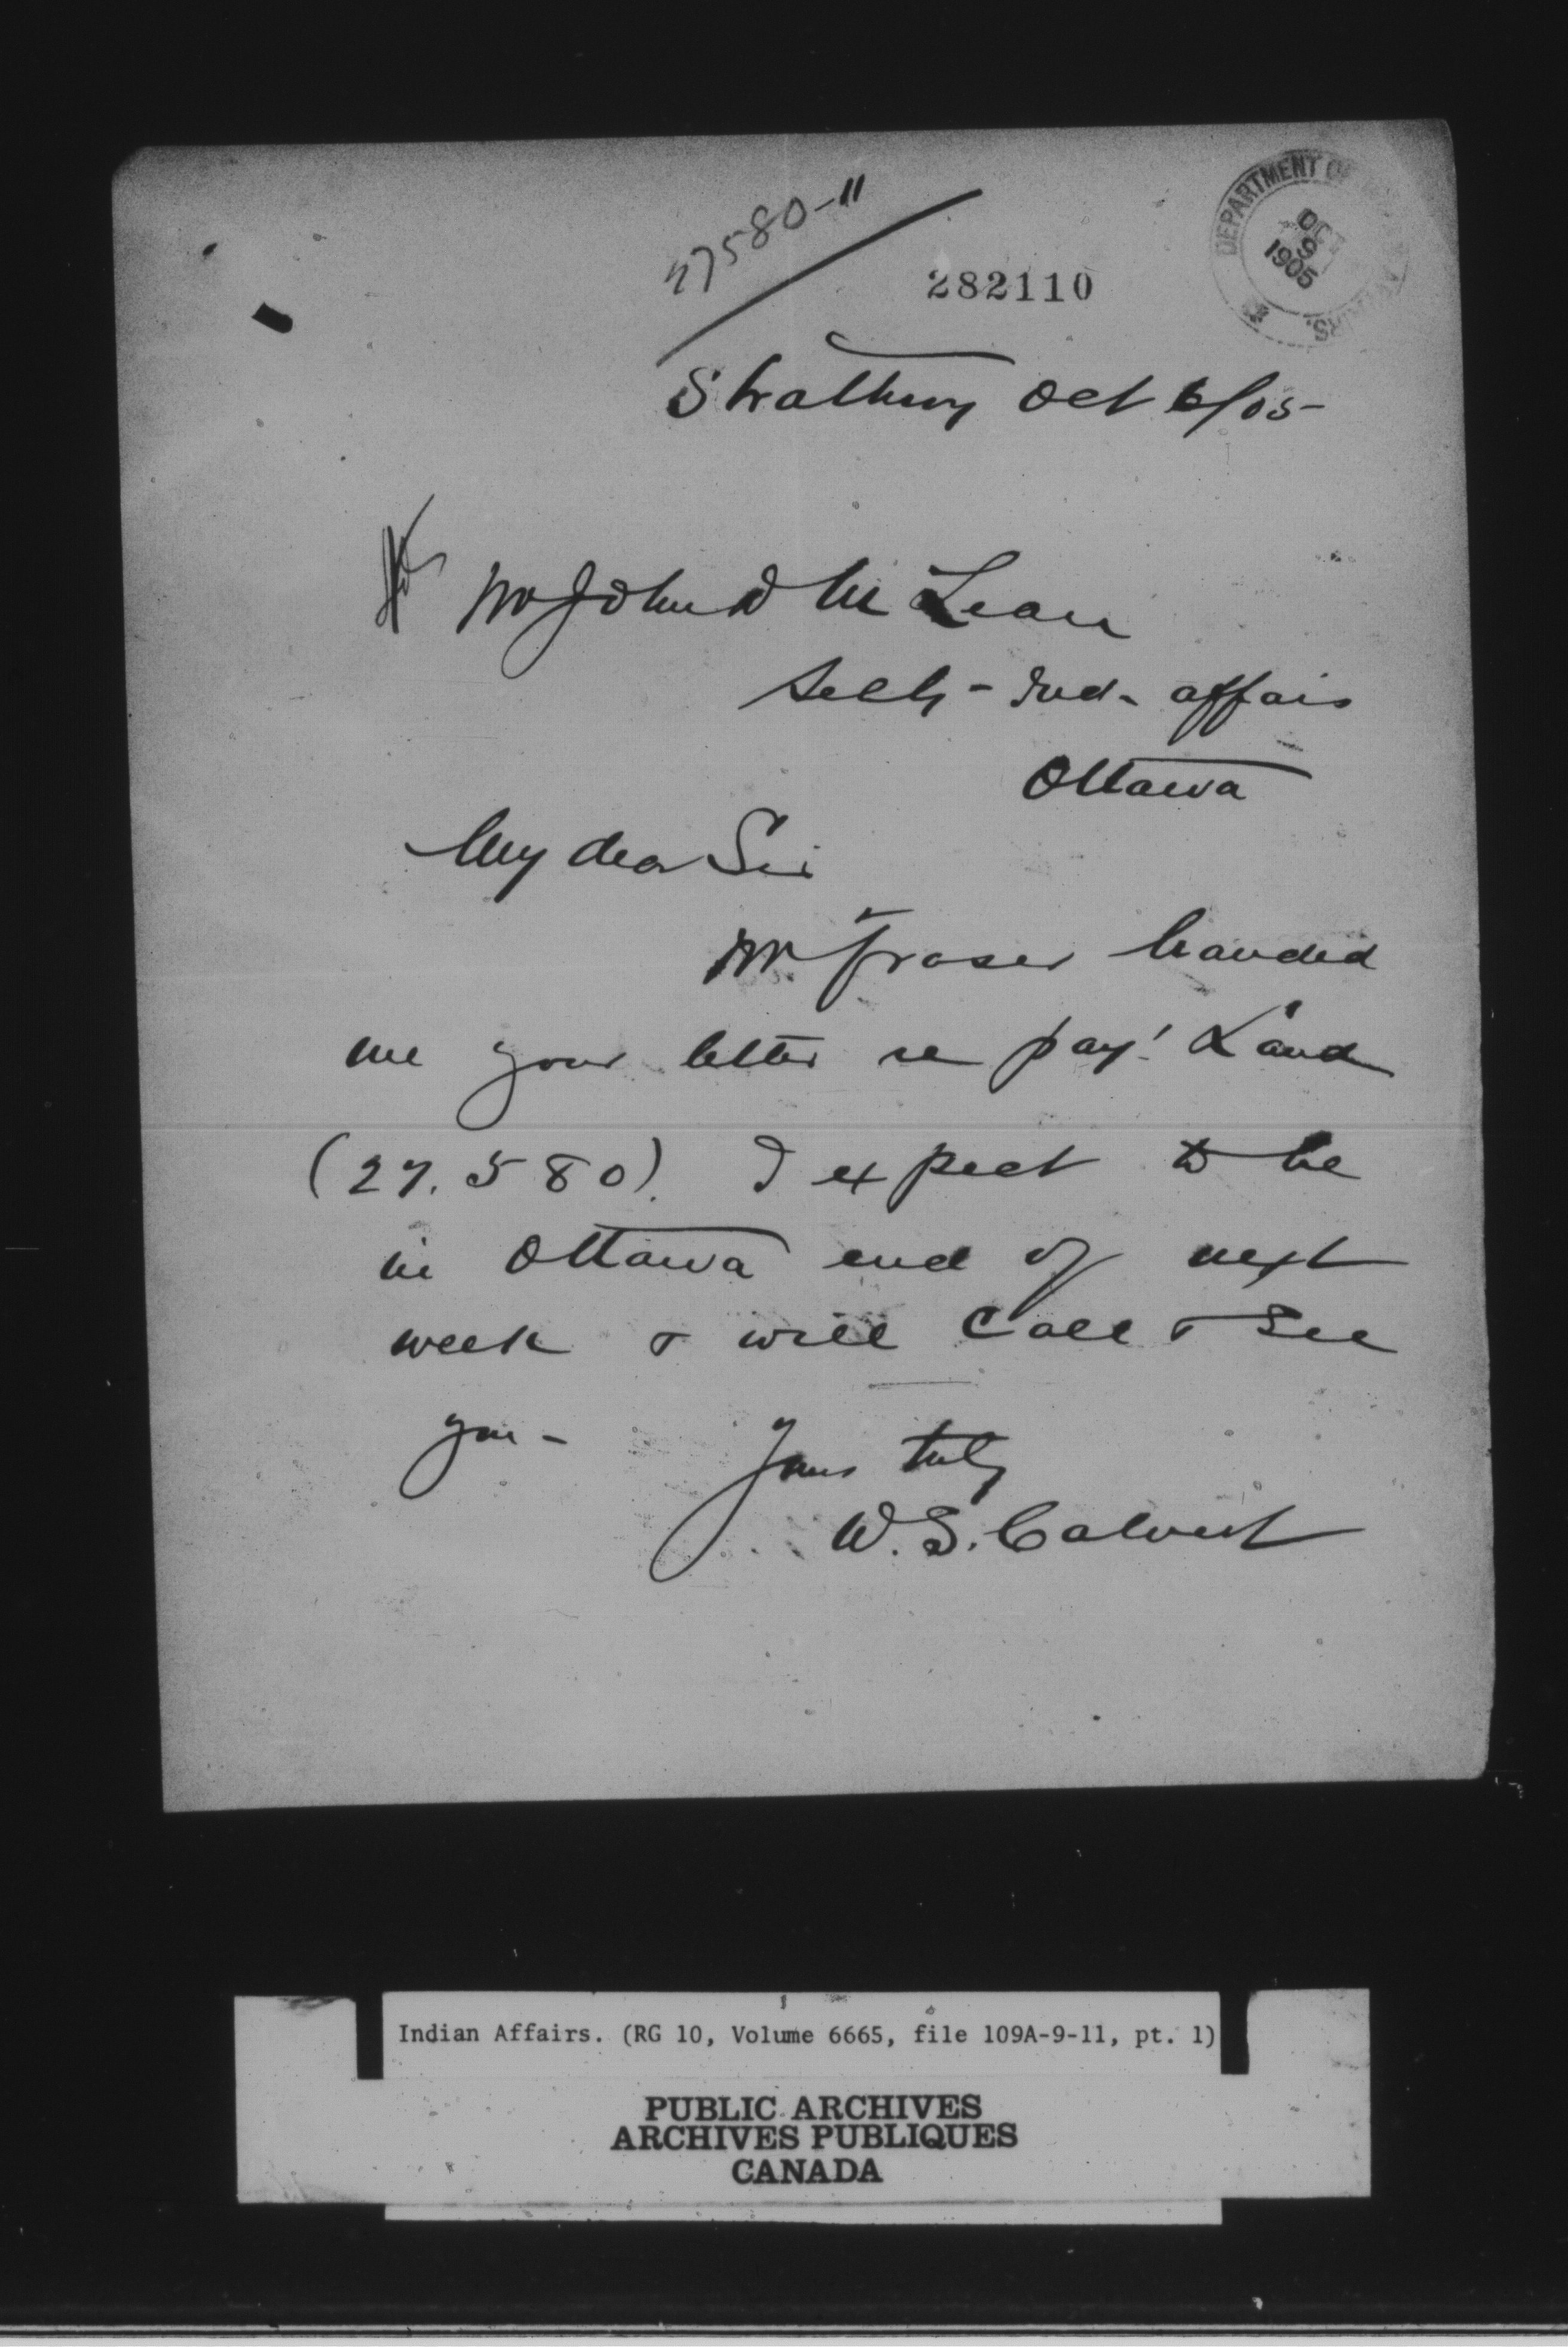 27580-11
282110
DEPARTMENT OF INDIAN AFFAIRS.
OCT 9 1905
Strathroy Oct 6/05-
Mr John D McLean
Secty - Ind - affairs
Ottawa
My dear Sir
Mr Fraser handed
me your letter re pay't Land
(27.580). I expect to be
in Ottawa end of next
week & will Call & See
you -
Yours truly
W.S. Calvert
Indian Affairs. (RG 10, Volume 6665, file 109A-9-11, pt. 1)
PUBLIC ARCHIVES
ARCHIVES PUBLIQUES
CANADA